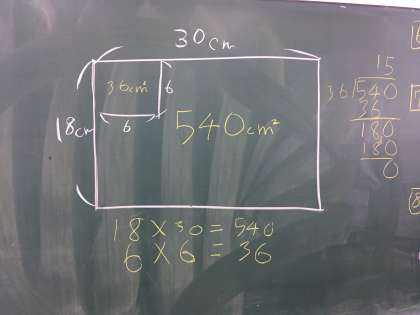 30cm
36cm² 6
6
18cm
540cm²
18×30=540
6×6=36
15
36)540
36
180
180
0